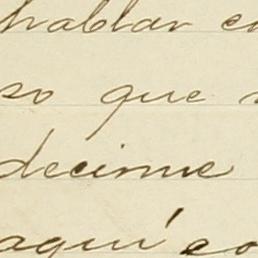 hablar co
so que
decirme
aquí co